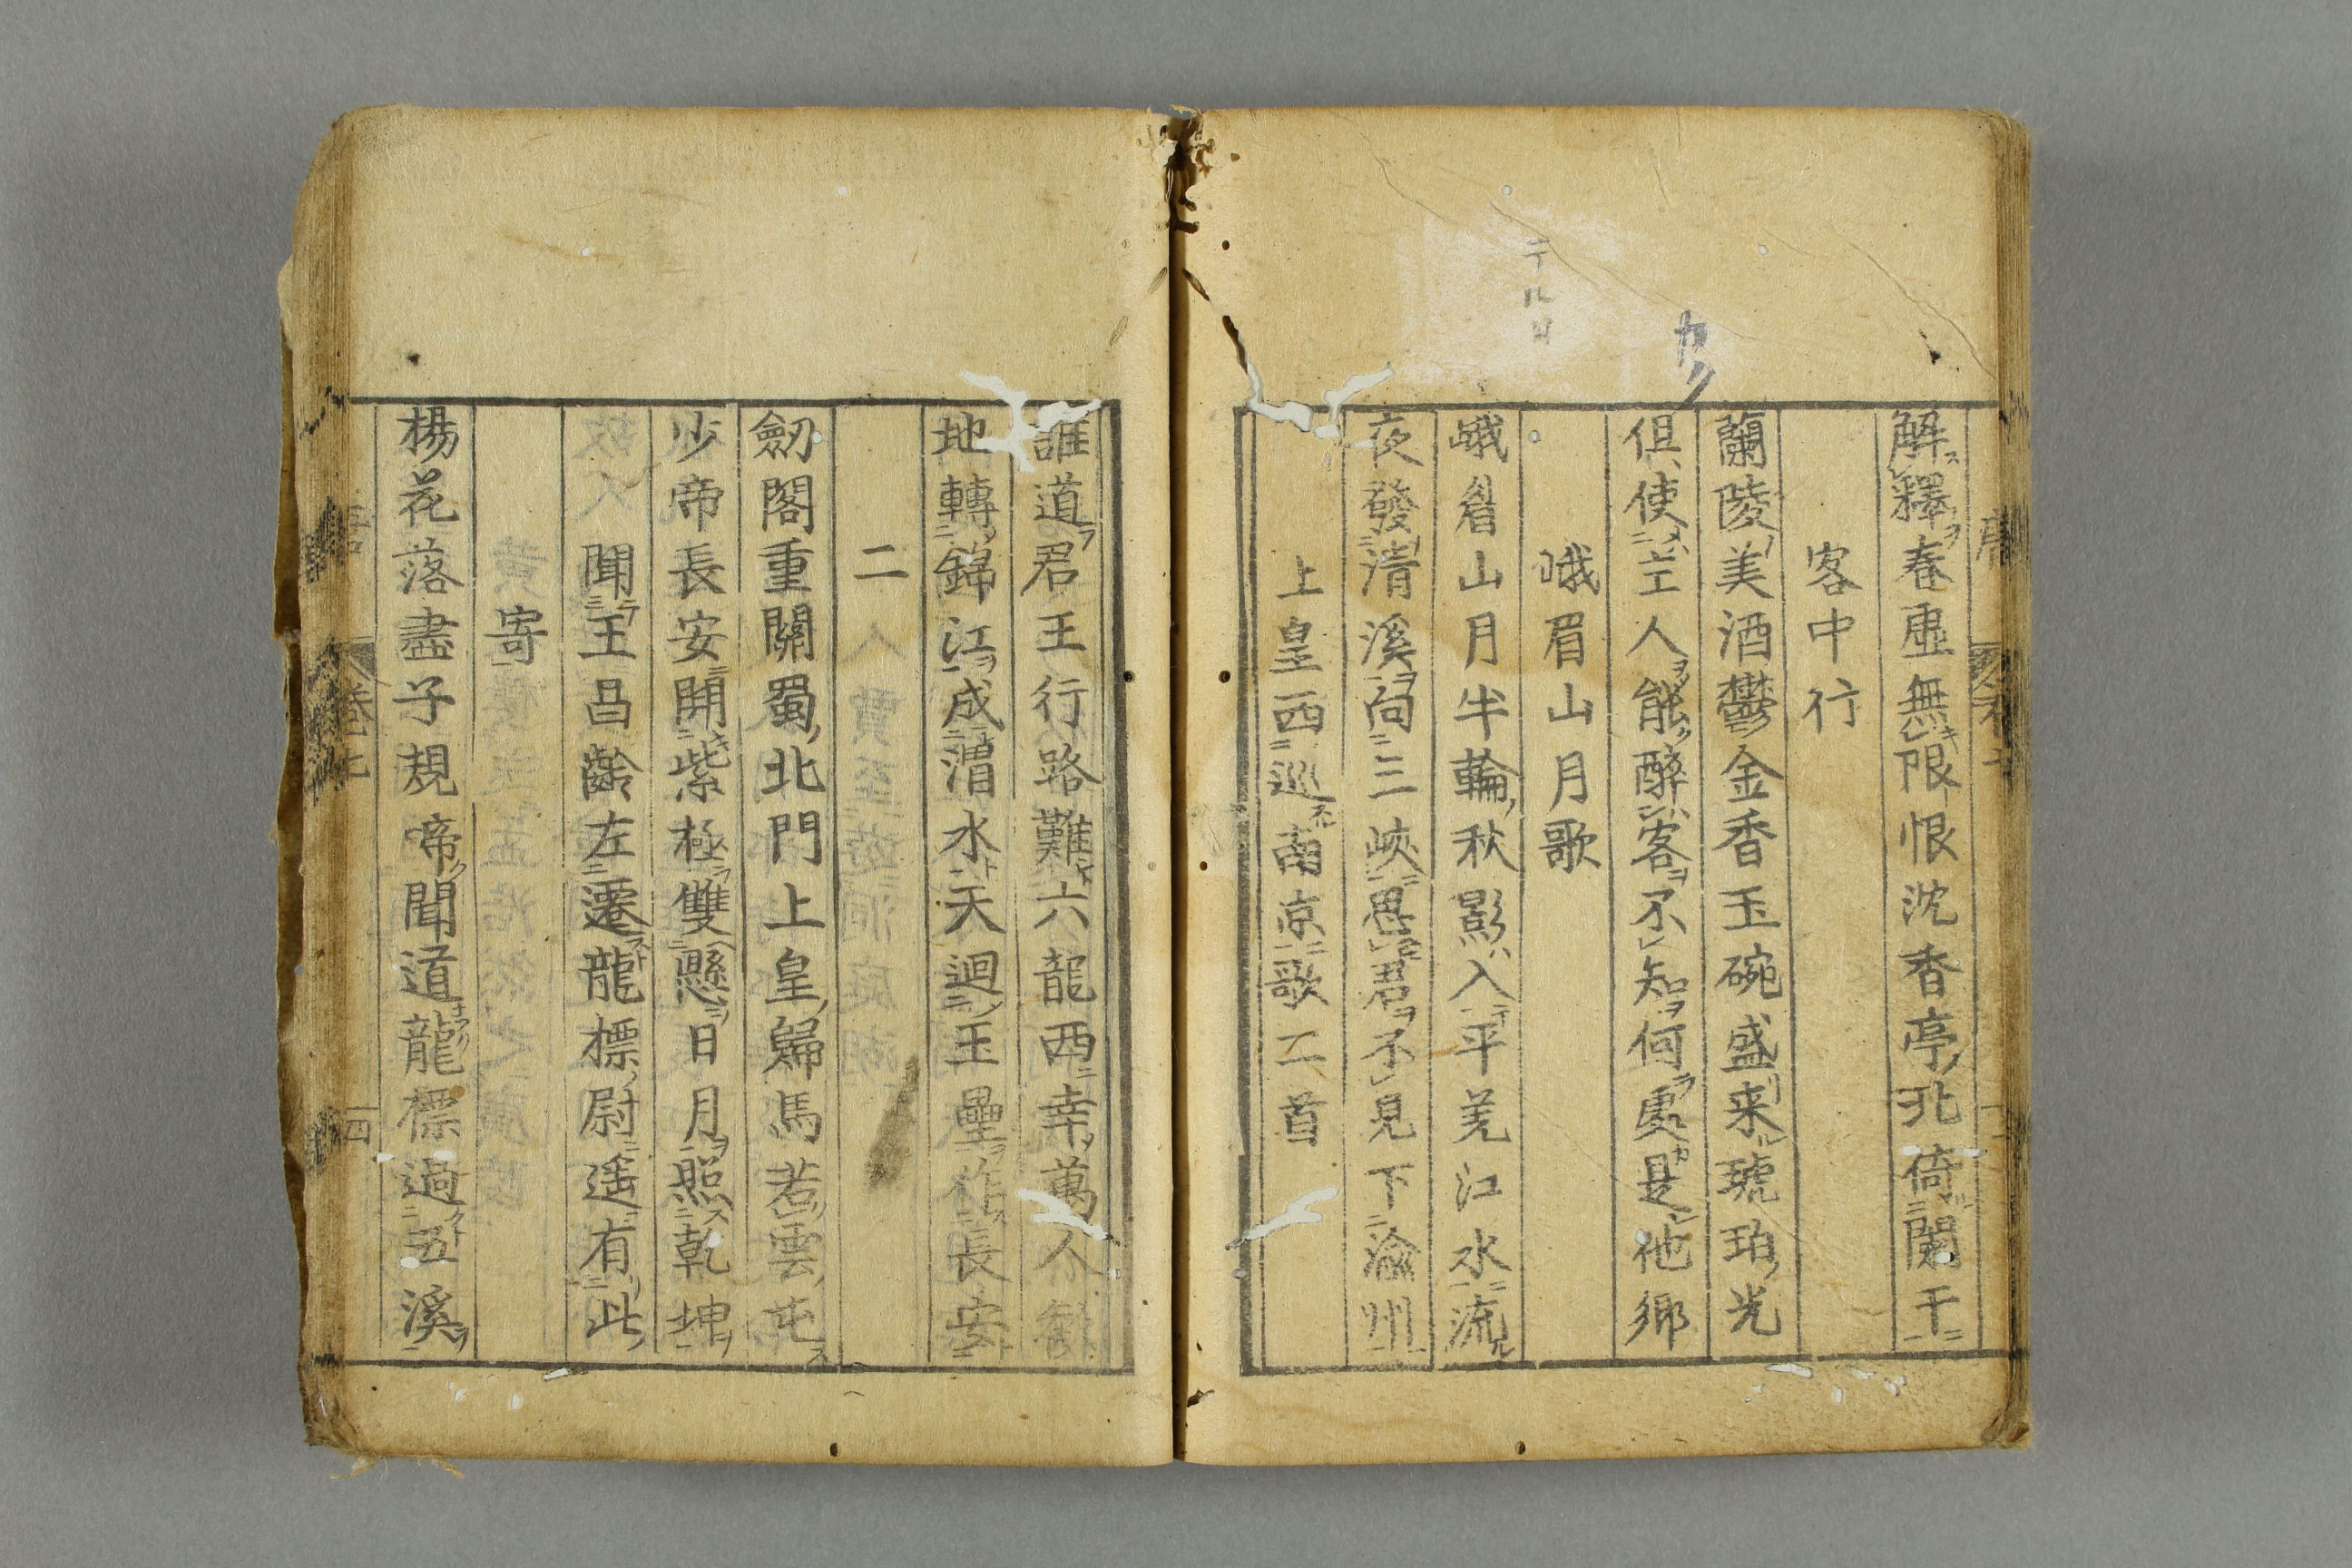 解釋春風無限恨沈香亭北倚闌干
客中行
蘭陵美酒鬱金香玉碗盛来琥珀光
但使主人能醉客不知何處是他鄉
峨眉山月歌
峨眉山月半輪秋影入平羌江水流
夜發清溪向三峽思君不見下渝州
上皇西巡南京歌二首
誰道君王行路難六龍西幸萬人歡
地轉錦江成渭水天迴玉壘作長安
二
劒閣重關蜀北門上皇歸馬若雲屯
少帝長安開紫極雙懸日月照乾坤
聞王昌齡左遷龍標尉遥有此
寄
楊花落盡子規啼聞道龍標過五溪